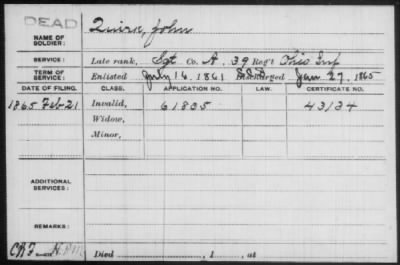 DEAD
NAME OF SOLDIER: Quirk, John
SERVICE: Late rank, Sgt Co. A, 39 Reg't Ohio Inf
TERM OF SERVICE: Enlisted July 16, 1861 Discharged Jan 27, 1865
DATE OF FILING. CLASS. APPLICATION NO. LAW. CERTIFICATE NO.
1865 Feb 21 Invalid, 61835 43134
Widow,
Minor,
ADDITIONAL SERVICES:
REMARKS:
Died , 1 , at